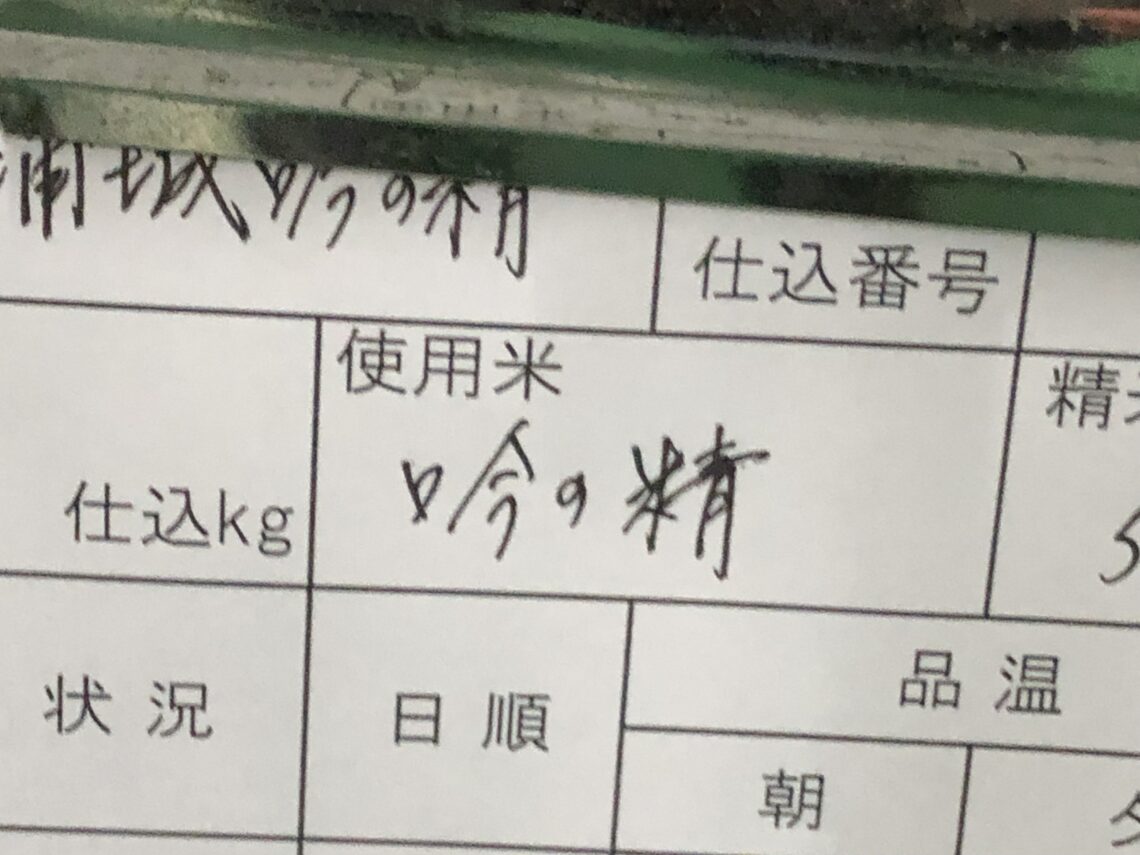 城吟の精
仕込番号
使用米
精
吟の精
仕込kg
品温
状況
日順
朝